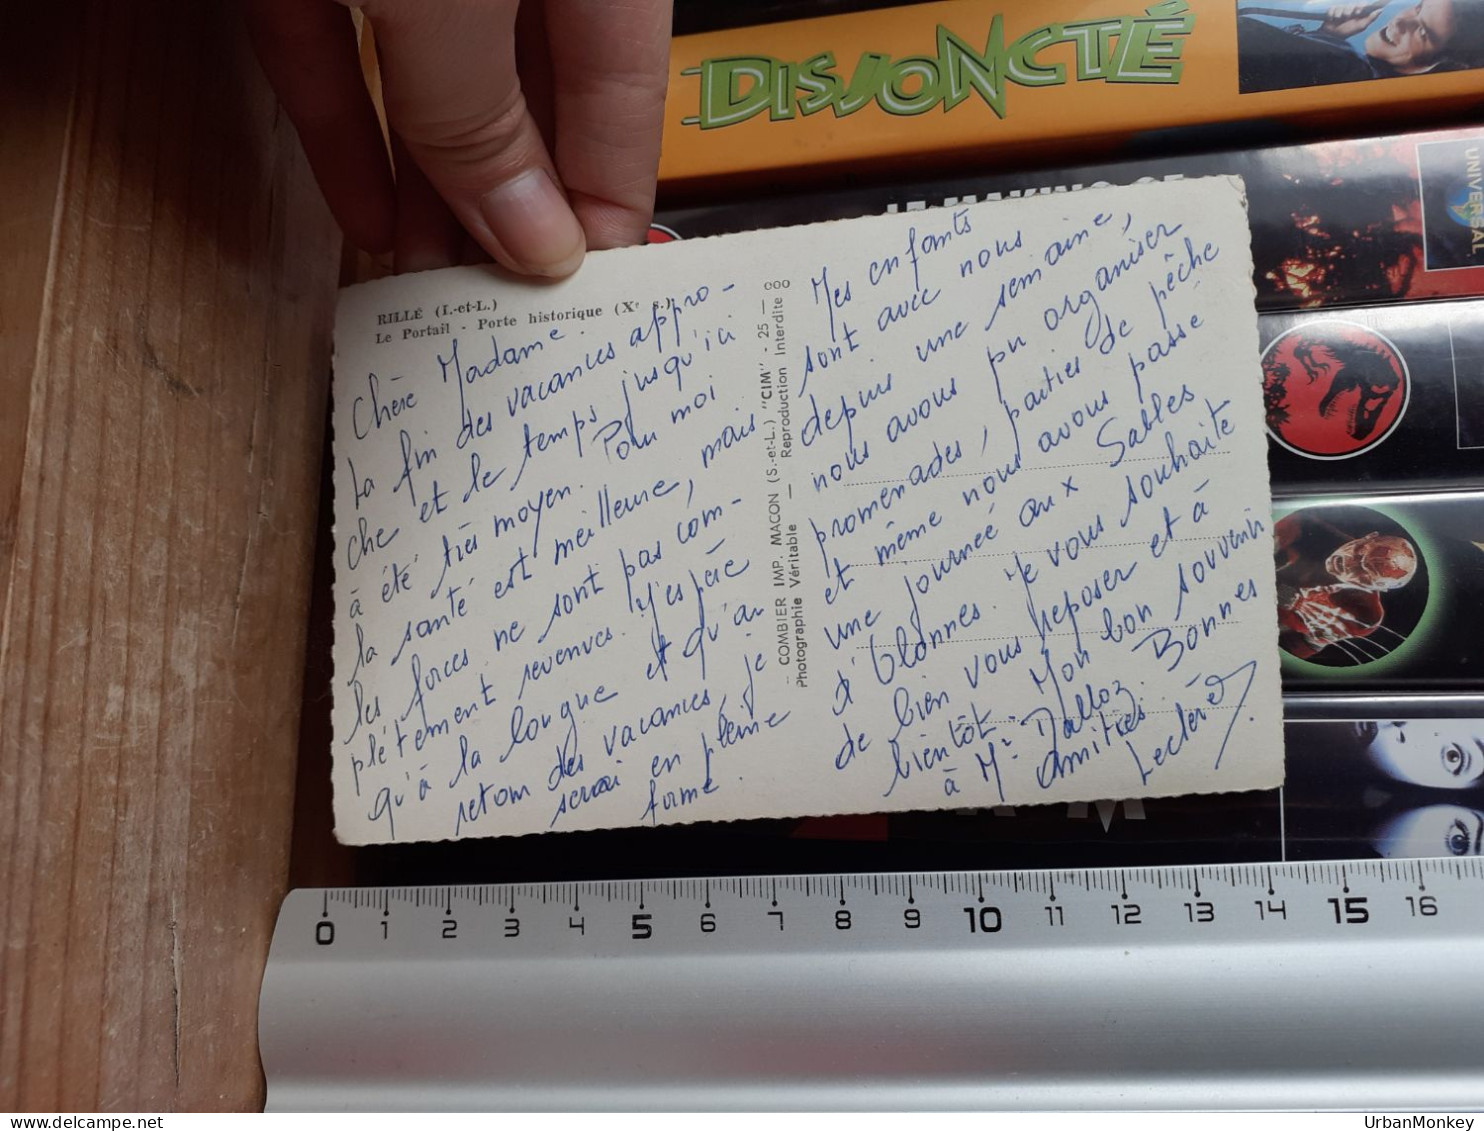 DISJONCTÉ
UNIVERSAL
RILLÉ (I.-et-L.)
Le Portail - Porte historique (Xe s.)
Chère Madame.
La fin des vacances appro-
che et le temps jusqu'ici
à été très moyen. Pour moi
la santé est meilleure, mais
les forces ne sont pas com-
plétement revenues. J'espère
qu'à la longue et qu'au
retour des vacances, je
serai en pleine
forme.
COMBIER IMP. MACON (S.-et-L.) "CIM" - 25 —
Photographie Véritable — Reproduction Interdite
Mes enfants
sont avec nous
depuis une semaine,
nous avons pu organiser
promenades, parties de pêche
et même nous avons passé
une journée aux Sables
d'Olonnes. Je vous souhaite
de bien vous reposer et à
bientôt. Mon bon souvenir
à Mr Dalloz. Bonnes
amitiés.
0 1 2 3 4 5 6 7 8 9 10 11 12 13 14 15 16
delcampe.net
UrbanMonkey